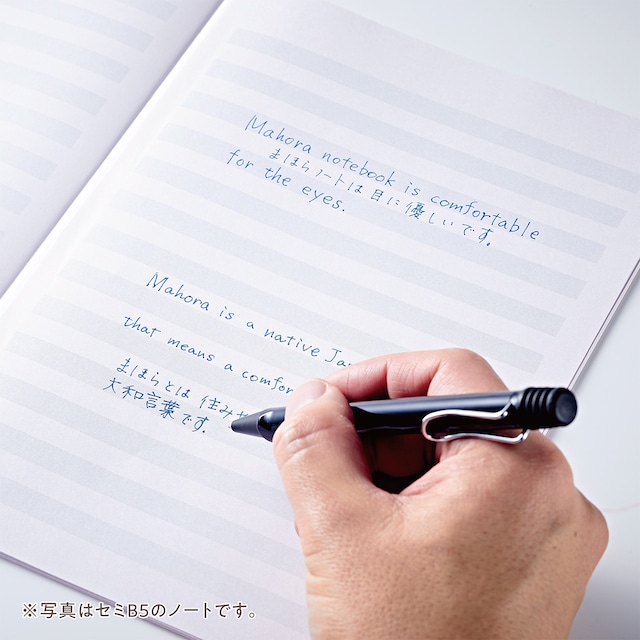 Mahora notebook is comfortable
まほらノートは目に優しいです。
for the eyes.
Mahora is a native
that means a
まほらとは 住みや
大和言葉です。
※写真はセミB5のノートです。